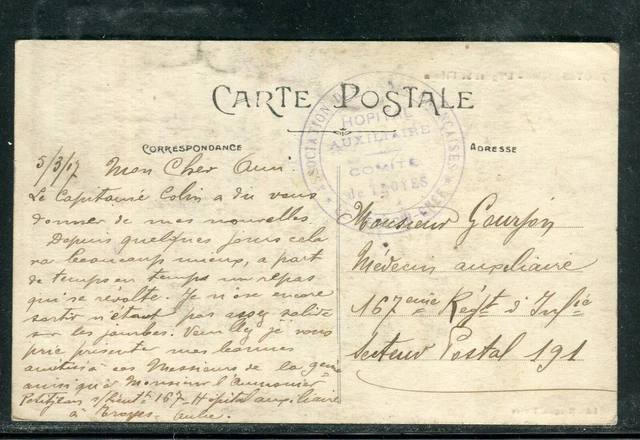 CARTE POSTALE
CORRESPONDANCE
ADRESSE
ASSOCIATION DES DAMES FRANÇAISES
HOPITAL
AUXILIAIRE
COMITÉ
de TROYES
5/3/17 Mon Cher Ami
Le Capitaine Colin a dû vous
donner de mes nouvelles.
Depuis quelques jours cela
va beaucoup mieux, a part
de temps en temps un repas
qui se révolte. Je n'ose encore
sortir n'étant pas assez solide
sur les jambes. Veuillez je vous
prie présenter mes bonnes
amitiés à ces Messieurs de la
ainsi qu'à Monsieur l'Aumonier
Petitjean s/Lieutt 167 - Hôpital auxiliaire
à Troyes - Aube.
Monsieur Gourjon
Médecin auxiliaire
167eme Régt d'Infie
Secteur Postal 191